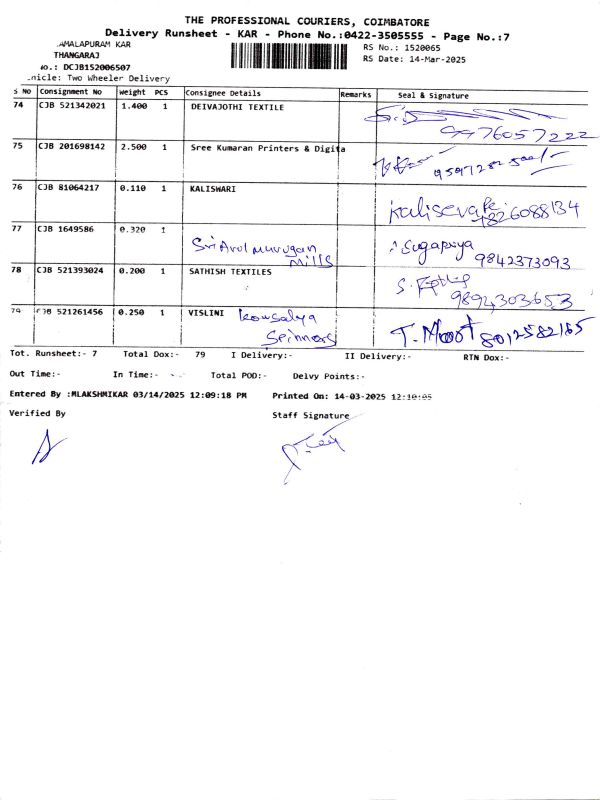 THE PROFESSIONAL COURIERS, COIMBATORE
Delivery Runsheet - KAR - Phone No.:0422-3505555 - Page No.:7
AMALAPURAM KAR RS No.: 1520065
THANGARAJ RS Date: 14-Mar-2025
No.: DCJB152006507
nicle: Two Wheeler Delivery
S NO Consignment No Weight PCS Consignee Details Remarks Seal & Signature
74 CJB 521342021 1.400 1 DEIVAJOTHI TEXTILE
9976057222
75 CJB 201698142 2.500 1 Sree Kumaran Printers & Digita
76 CJB 81064217 0.110 1 KALISWARI
77 CJB 1649586 0.320 1 Sri Arul Murugan Mills Sugapriya 9842373093
78 CJB 521393024 0.200 1 SATHISH TEXTILES
9894303653
79 CJB 521261456 0.250 1 VISLINI Kowsalya Spinners
8012582165
Tot. Runsheet:- 7 Total Dox:- 79 I Delivery:- II Delivery:- RTN Dox:-
Out Time:- In Time:- Total POD:- Delvy Points:-
Entered By :MLAKSHMIKAR 03/14/2025 12:09:18 PM Printed On: 14-03-2025 12:10:05
Verified By Staff Signature